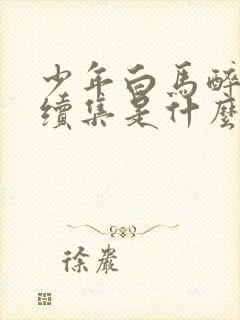 少年白馬醉
續集是什麼
徐巖